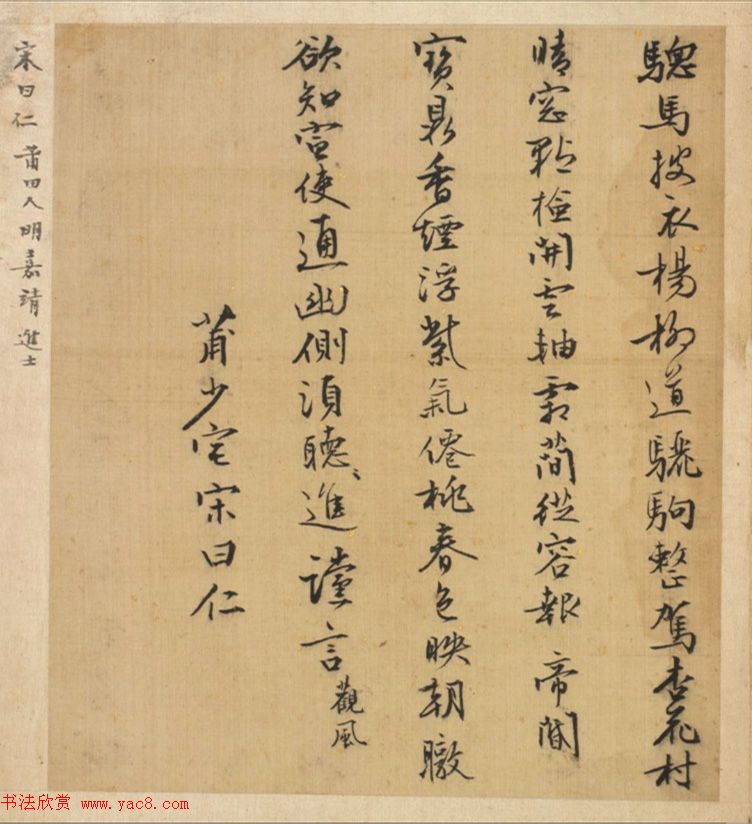 驄馬披衣楊柳道驪駒整駕杏花村
晴窓點檢開雲軸霜簡從容報 帝閽
寳鼎香煙浮紫氣僊桃春色映朝暾
欲知宣使通幽側須聽〻進讜言 觀風
莆少宅宋曰仁
宋曰仁 莆田人明嘉靖進士
书法欣赏 www.yac8.com